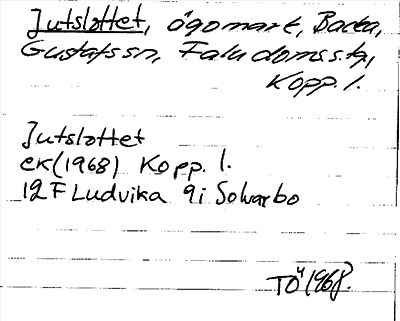 Jutslottet, ägomark, Backa,
Gustafs sn, Falu doms.s.tg,
Kopp. l.
Jutslottet
ek (1968) Kopp. l.
12 F Ludvika 9i Solvarbo
TÖ 1968.